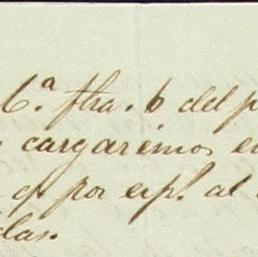 6ª fha. 6 del p
cargaremos e
q̃ por espl. al
das.